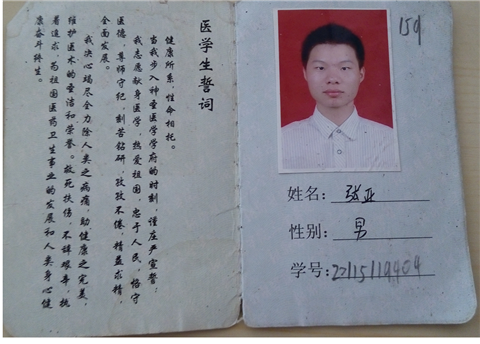 医学生誓词
健康所系,性命相托。
当我步入神圣医学学府的时刻,谨庄严宣誓:
我志愿献身医学,热爱祖国,忠于人民,恪守
医德,尊师守纪,刻苦钻研,孜孜不倦,精益求精,
全面发展。
我决心竭尽全力除人类之病痛,助健康之完美,
维护医术的圣洁和荣誉。救死扶伤,不辞艰辛,执
着追求,为祖国医药卫生事业的发展和人类身心健
康奋斗终生。
159
姓名: 张亚
性别: 男
学号: